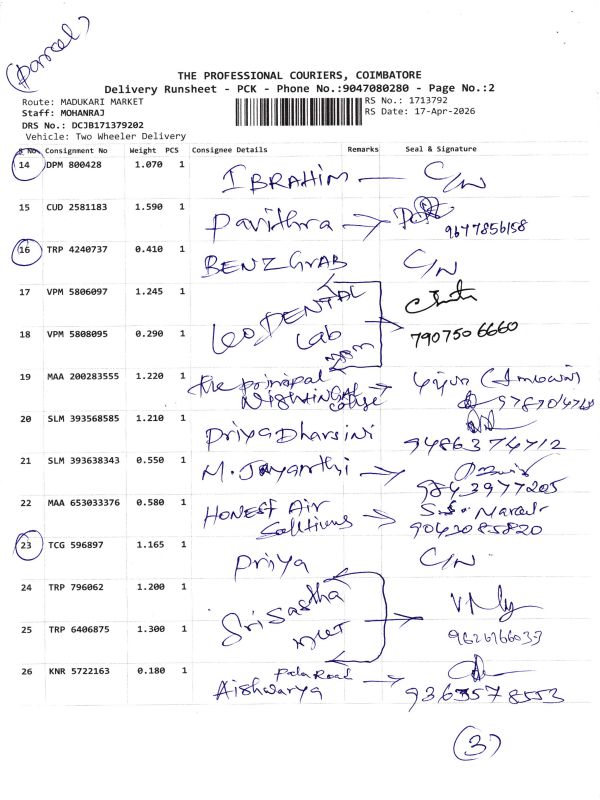 (Parcel)
THE PROFESSIONAL COURIERS, COIMBATORE
Delivery Runsheet - PCK - Phone No.:9047080280 - Page No.:2
Route: MADUKARI MARKET
Staff: MOHANRAJ
DRS No.: DCJB171379202
Vehicle: Two Wheeler Delivery
RS No.: 1713792
RS Date: 17-Apr-2026
S No. Consignment No Weight PCS Consignee Details Remarks Seal & Signature
14 DPM 800428 1.070 1 IBRAHIM — C/N
15 CUD 2581183 1.590 1 Pavithra → 9677856158
16 TRP 4240737 0.410 1 BENZ GRAB C/N
17 VPM 5806097 1.245 1
18 VPM 5808095 0.290 1 Leo DENTAL Lab 7907506660
19 MAA 200283555 1.220 1 The principal Nightingal college →
20 SLM 393568585 1.210 1 Priya Dharsini 9486374712
21 SLM 393638343 0.550 1 M. Jayanthi → 9843977205
22 MAA 653033376 0.580 1 HONEST AIR Solltiuns → 9043085820
23 TCG 596897 1.165 1 Priya C/N
24 TRP 796062 1.200 1 Sri Sastha
25 TRP 6406875 1.300 1
26 KNR 5722163 0.180 1 Aishwarya → 9363578553
(3)